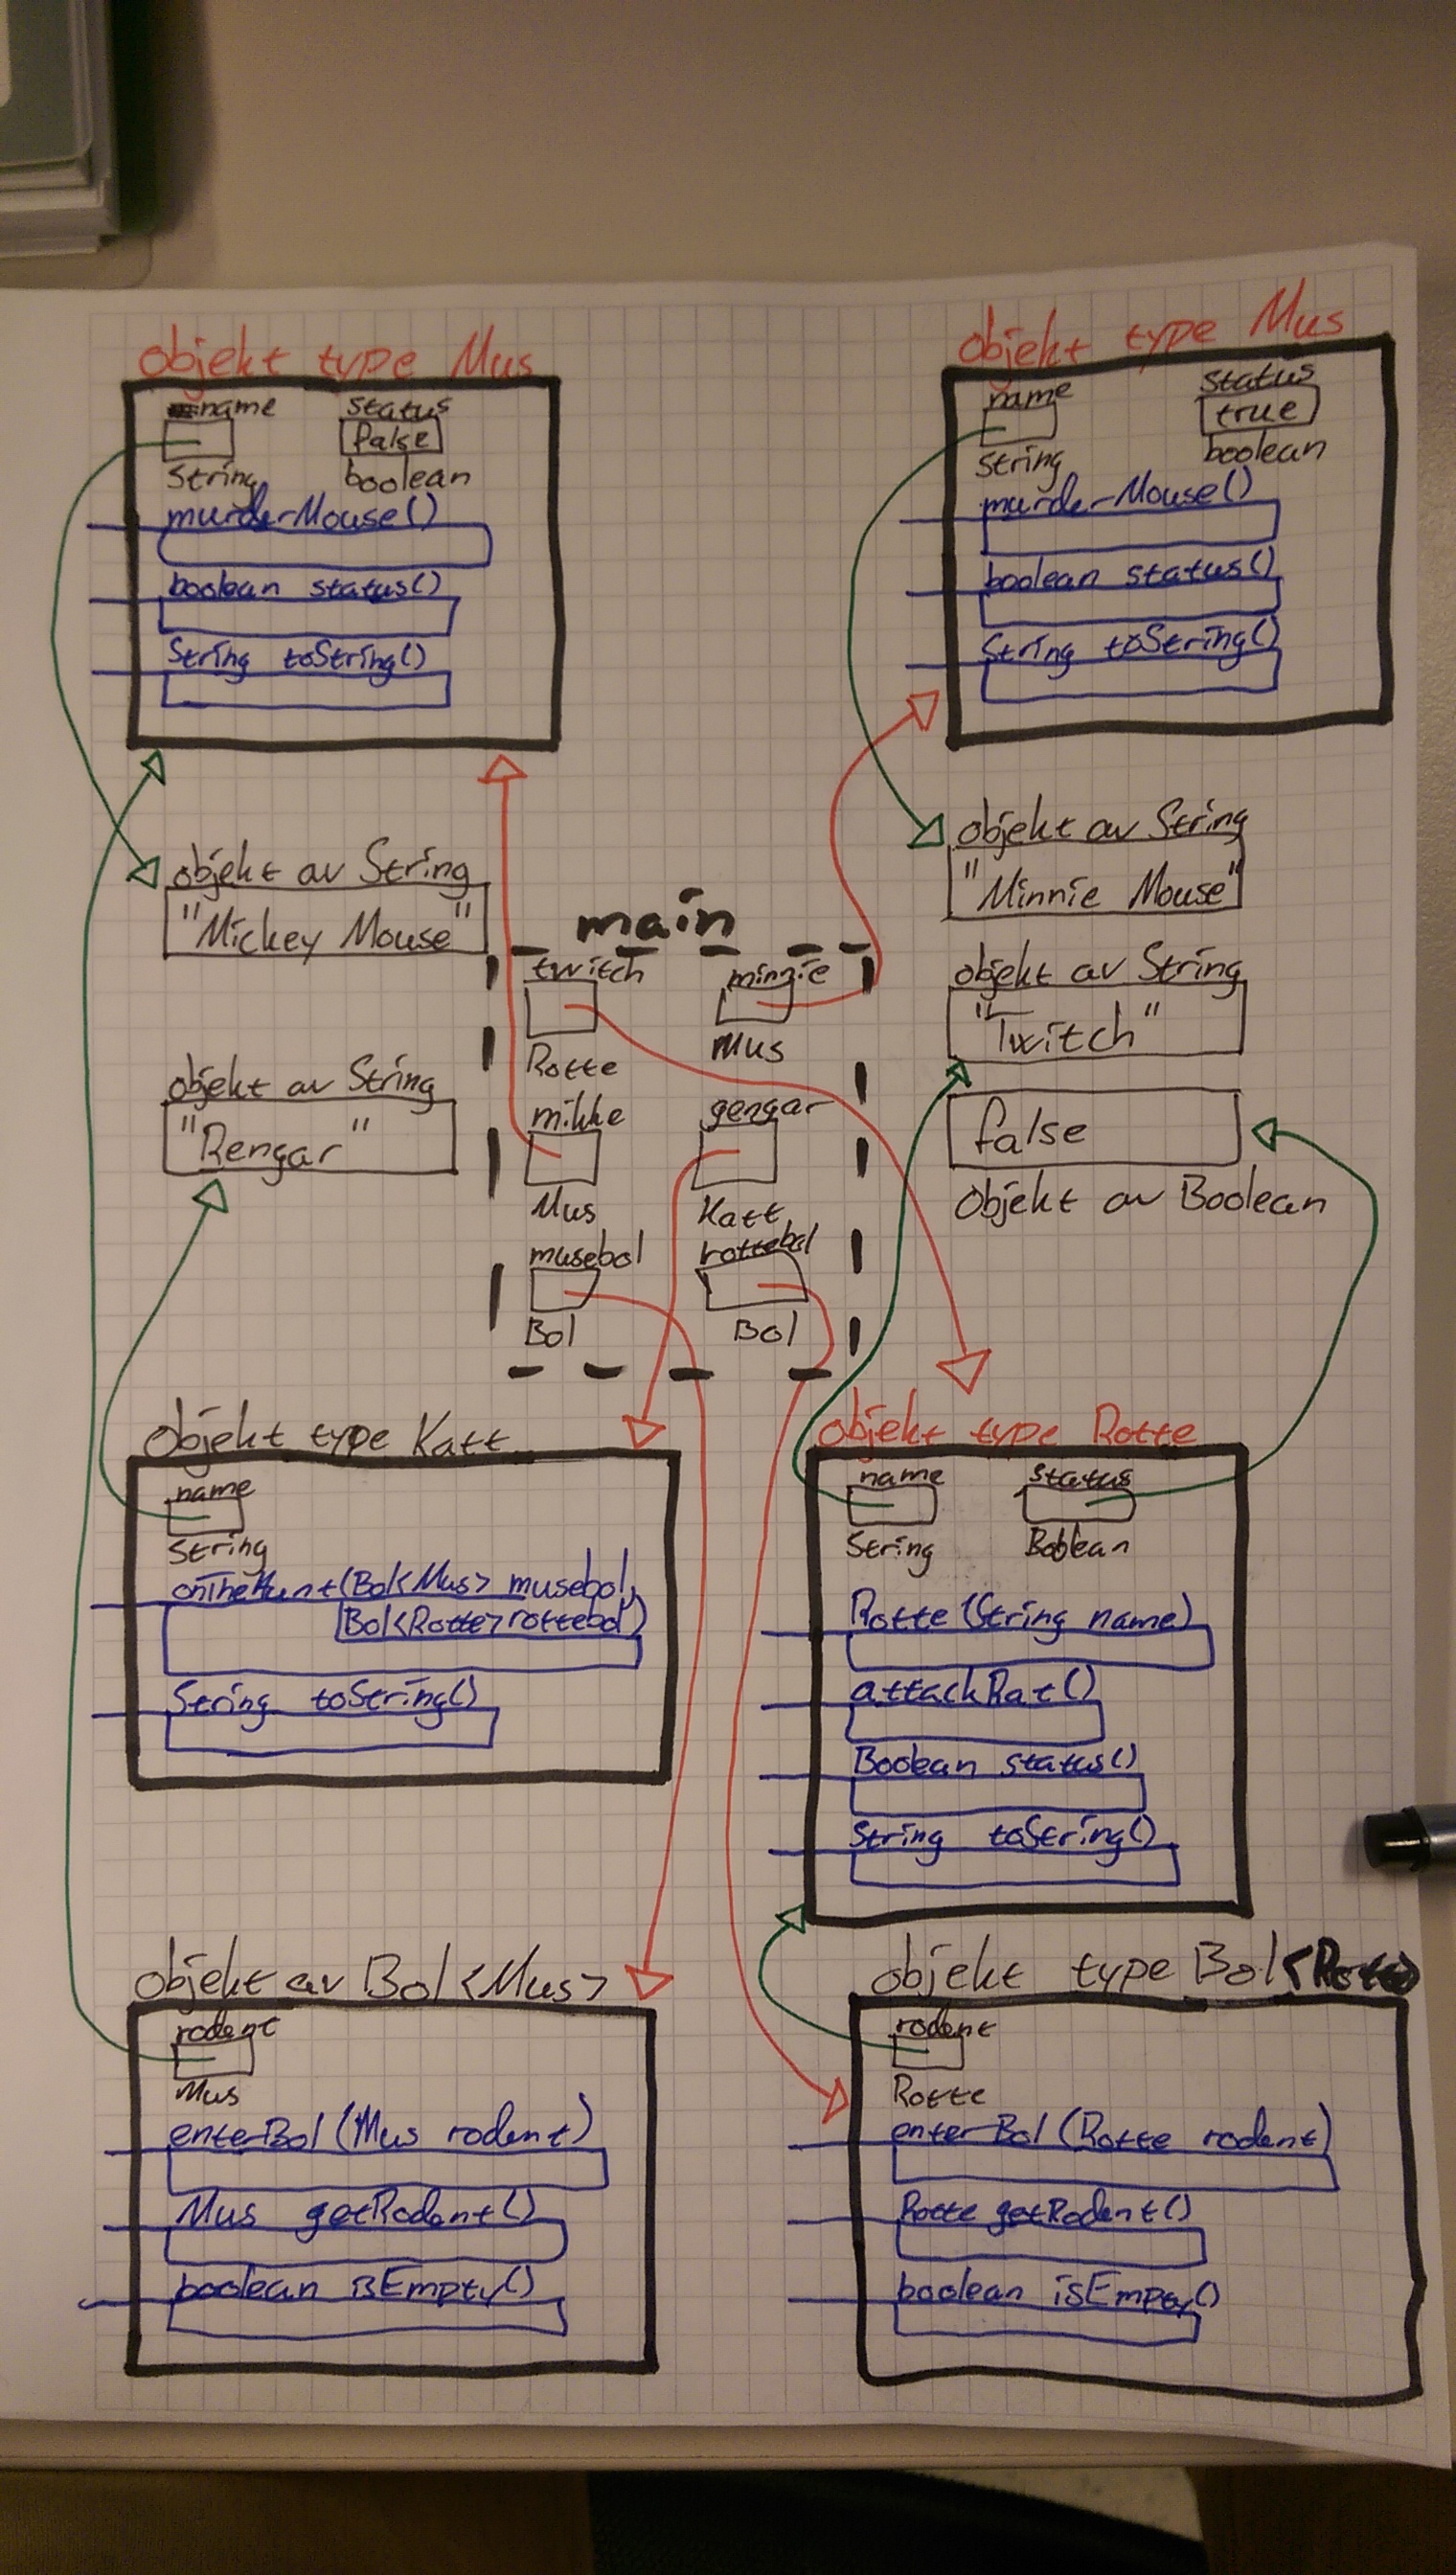 objekt type Mus
name status
false
String boolean
murderMouse()
boolean status()
String toString()
objekt type Mus
name status
true
String boolean
murderMouse()
boolean status()
String toString()
objekt av String
"Mickey Mouse"
objekt av String
"Minnie Mouse"
objekt av String
"Twitch"
false
objekt av Boolean
objekt av String
"Rengar"
main
twitch
Rotte Mus
mikke gengar
Mus Katt
musebol rottebol
Bol Bol
objekt type Katt
name
String
onTheHunt(Bol<Mus> musebol,
Bol<Rotte> rottebol)
String toString()
objekt type Rotte
name status
String Boolean
Rotte(String name)
attackRat()
Boolean status()
String toString()
objekt av Bol<Mus>
rodent
Mus
enterBol(Mus rodent)
Mus getRodent()
boolean isEmpty()
objekt type Bol<Rotte>
rodent
Rotte
enterBol(Rotte rodent)
Rotte getRodent()
boolean isEmpty()